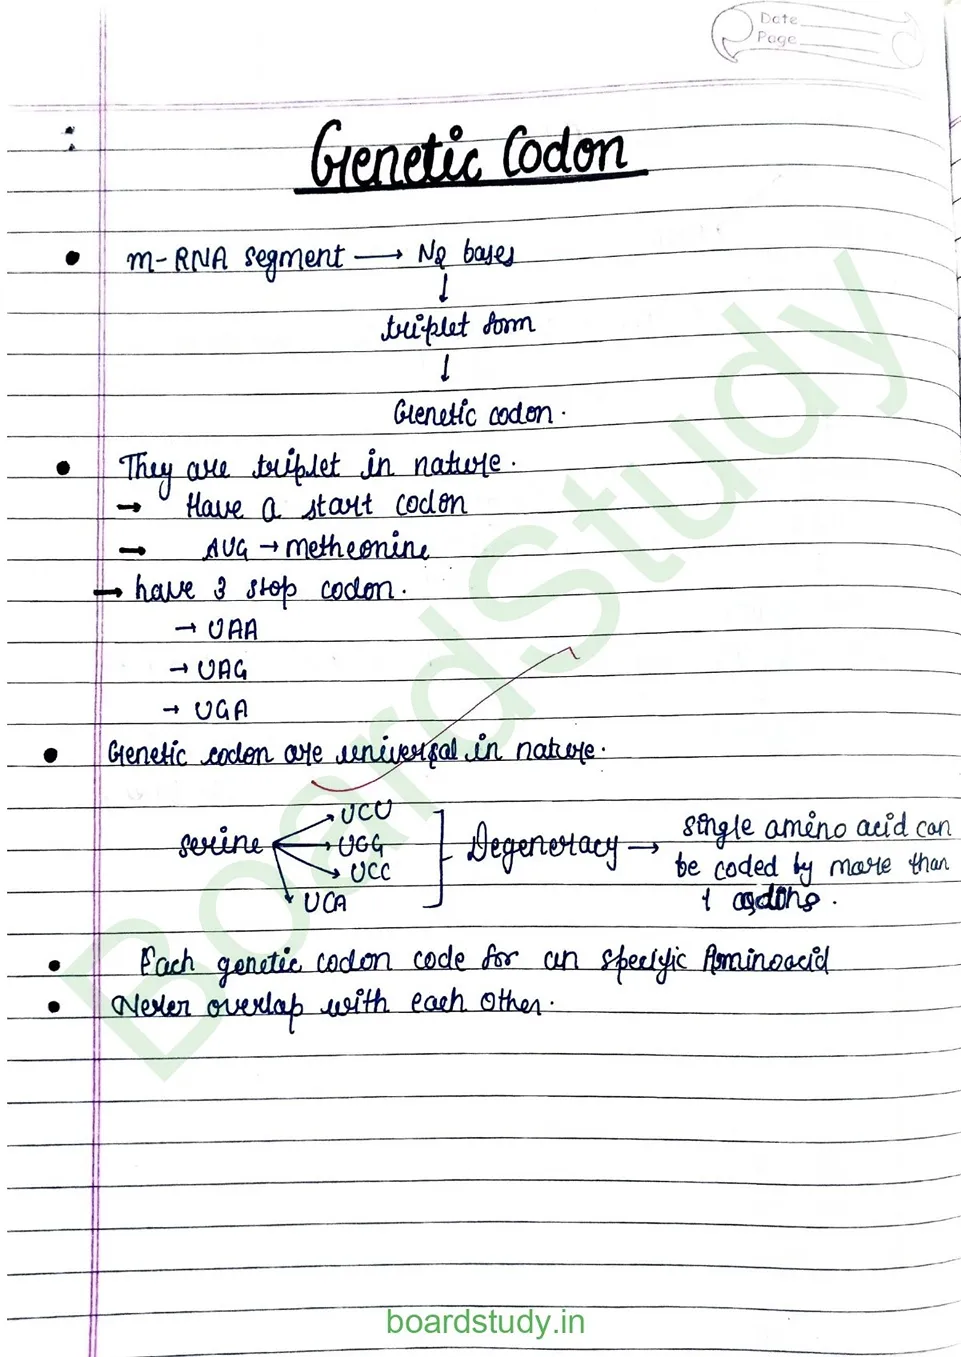 Date
Page
Genetic Codon
m-RNA segment → N2 bases
↓
triplet form
↓
Genetic codon.
They are triplet in nature.
→ Have a start codon
→ AUG → metheonine
→ have 3 stop codon.
→ UAA
→ UAG
→ UGA
Genetic codon are universal in nature.
serine
UCU
UCG
UCC
UCA
Degeneracy →
single amino acid can
be coded by more than
1 codons.
Each genetic codon code for an specific Aminoacid
Never overlap with each other.
BoardStudy
boardstudy.in